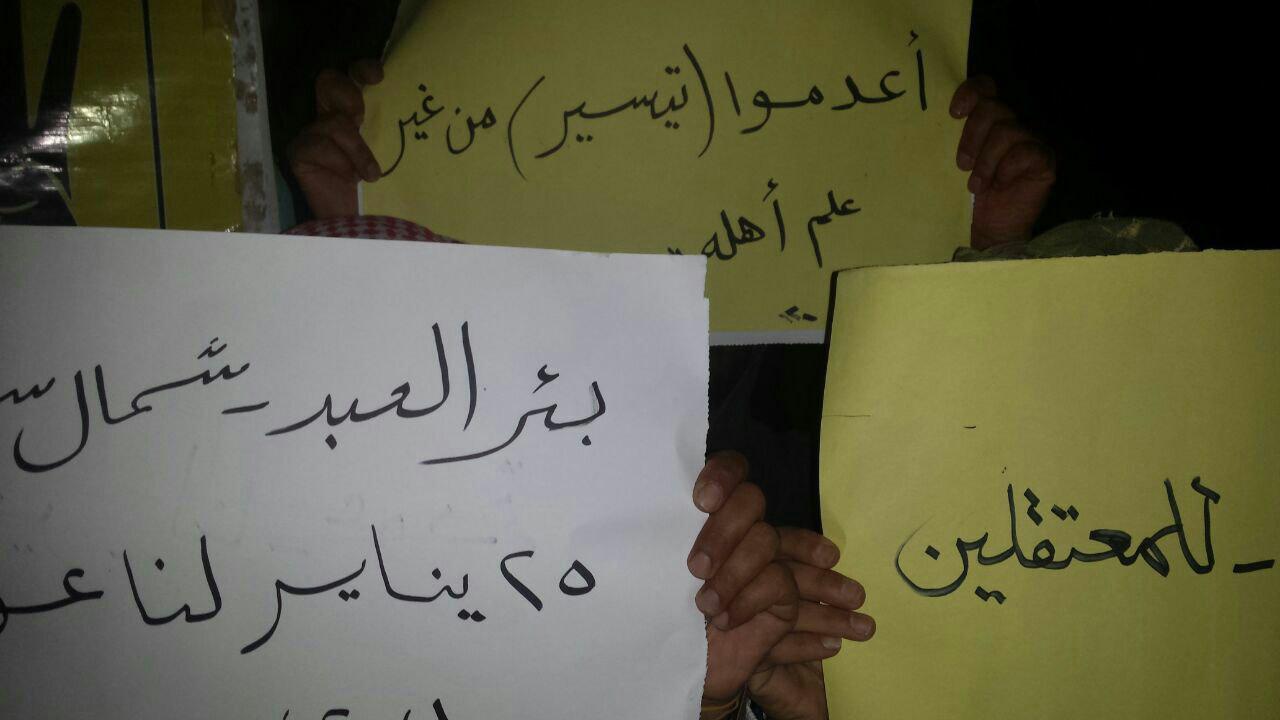 أعدموا (تيسير) من غير
علم أهله
بئر العبد - شمال
٢٥ يناير لنا
للمعتقلين